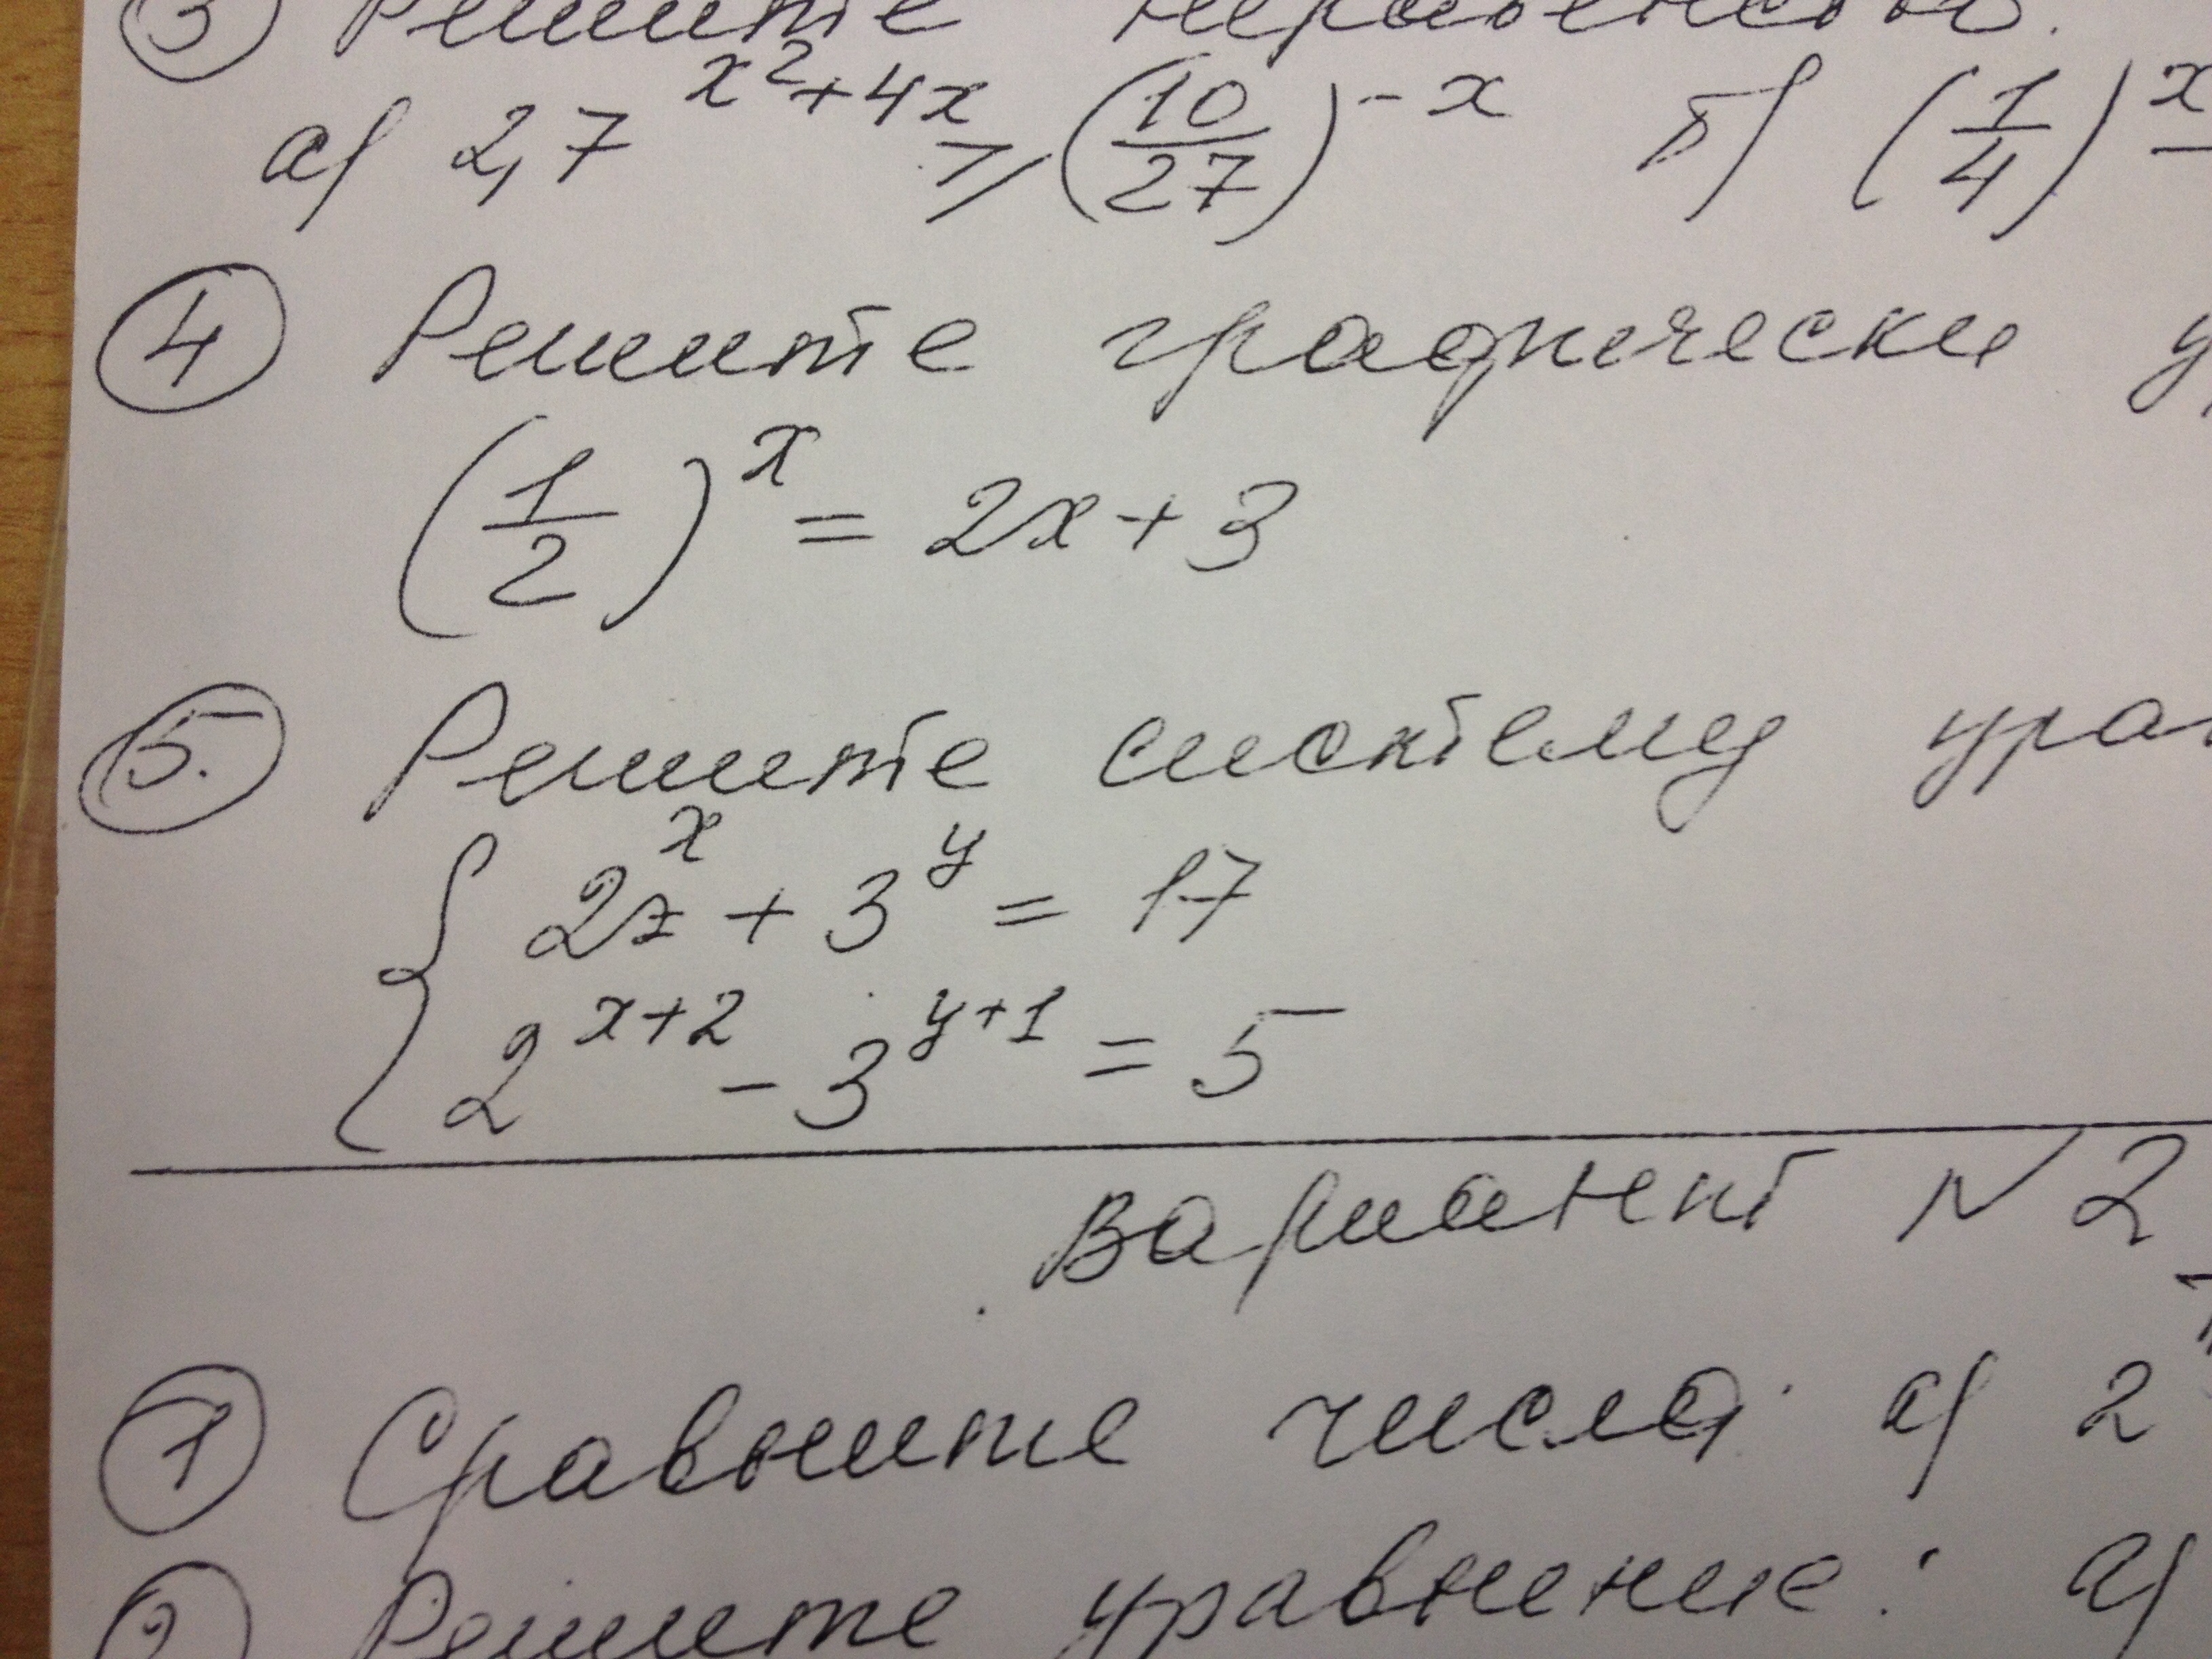 ③ Решите неравенство.
а) 2,7^(x²+4x) ⩾ (10/27)^(-x) б) (1/4)^x
④ Решите графически у
(1/2)^x = 2x + 3
⑤. Решите систему ура
{ 2^x + 3^y = 17
2^(x+2) - 3^(y+1) = 5
Вариант N 2
① Сравните числа: а) 2
② Решите уравнение: а)